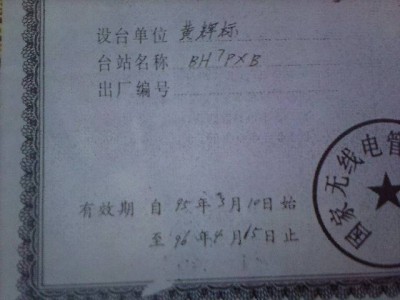 设台单位 黄辉标
台站名称 BH7PXB
出厂编号
国家无线电管
有效期 自 95年3月10日始
至 96年4月15日止